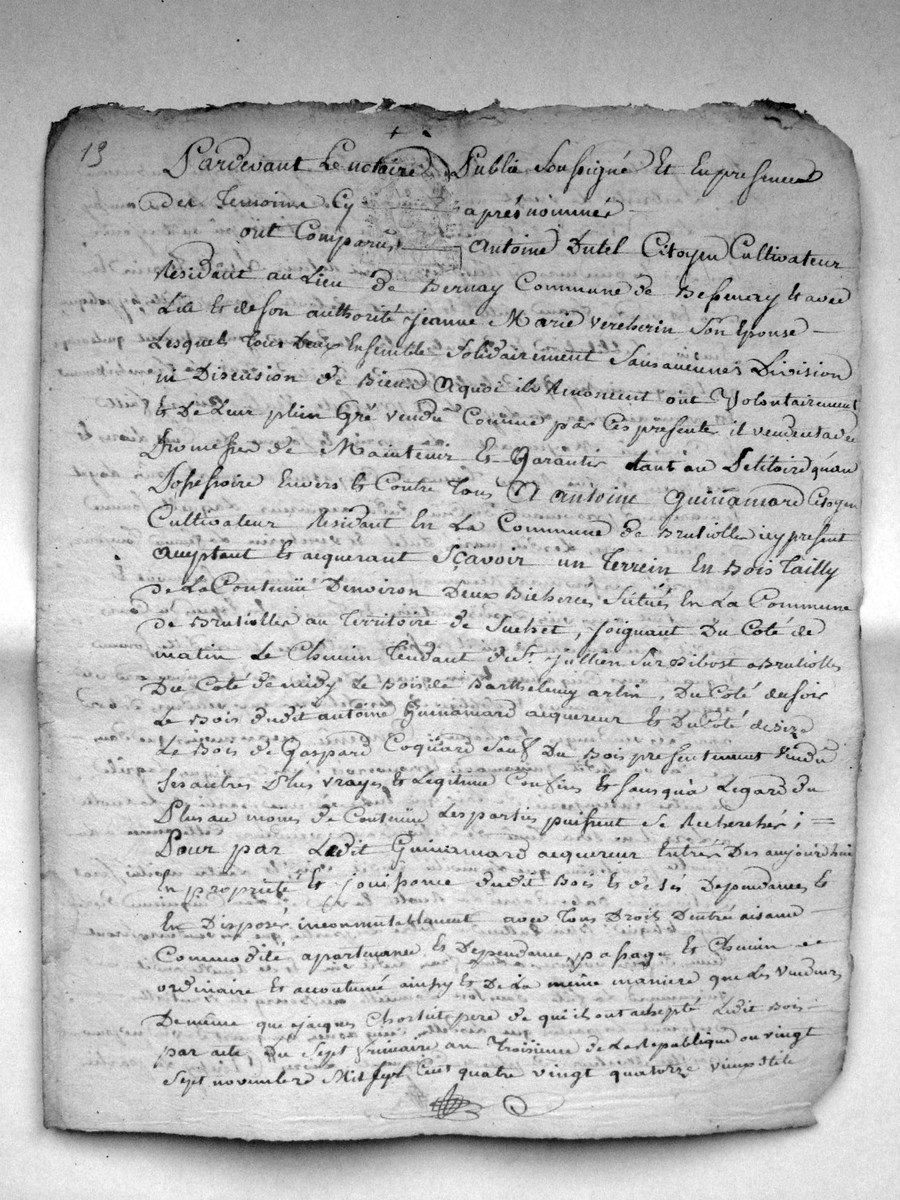 13
Pardevant Le notaire Public Soussigné Et En presence
des Temoins Cy aprés nommés
ont Comparus Antoine Dutel Citoyen Cultivateur
Residant au Lieu de Bernay Commune de Bessenay Et avec
Lui Et de son authorité Jeanne Marie vercherin son Epouse
Lesquels Tous Deux Ensemble Solidairement Sans aucunes Division
ni Discution de Biens aquoi ils Renoncent ont Volontairement
Et De Leur plein Gré vendu Comme par Ces presentes il vendent avec
Promesse de Maintenir Et Garantir tant au Petitoire qu'au
Possessoire Envers Et Contre Tous A Antoine Guinamard Citoyen
Cultivateur Residant En La Commune de Brusiolles icy present
acceptant Et acquerant Sçavoir un Terrein En Bois Tailly
de La Contenüe D'environ Deux Bicherés Situés En La Commune
de Brusiolles au Territoire de , Joignant Du Coté de
matin Le Chemin Tendant de St. Jullien Sur Bibost a Brusiolles
Du Coté de midy Le Bois de Barthelemy arlin, Du Coté du soir
Le Bois dudit antoine Guinamard acquereur Et Du Coté de Bize
Le Bois de Gaspard Coquard Sauf Du Bois presentement Vendu
Ses autres Plus vrayes Et Legitime Confins Et Sans qu'a Legard du
Plus au moins de Contenüe Les parties puissent Se Rechercher ;
Pour par Ledit Guinamard acquereur Entrer Des aujourd'hui
En propriété Et Jouissance dudit Bois Et de ses Dependances Et
En Disposé incommutablement avec Tous Droit D'entré aisance
Commodité apartenance Et Dependance, passage Et Chemin
ordinaire Et accoutumé ainsy Et De La même maniere que Les Vendeurs
De même que Jacques pere de qui il ont achepté Ledit Bois
par acte, du Sept frimaire an Troisieme de La Republique ou vingt
Sept novembre Mil Sept Cent quatre vingt quatorze vieux Stile